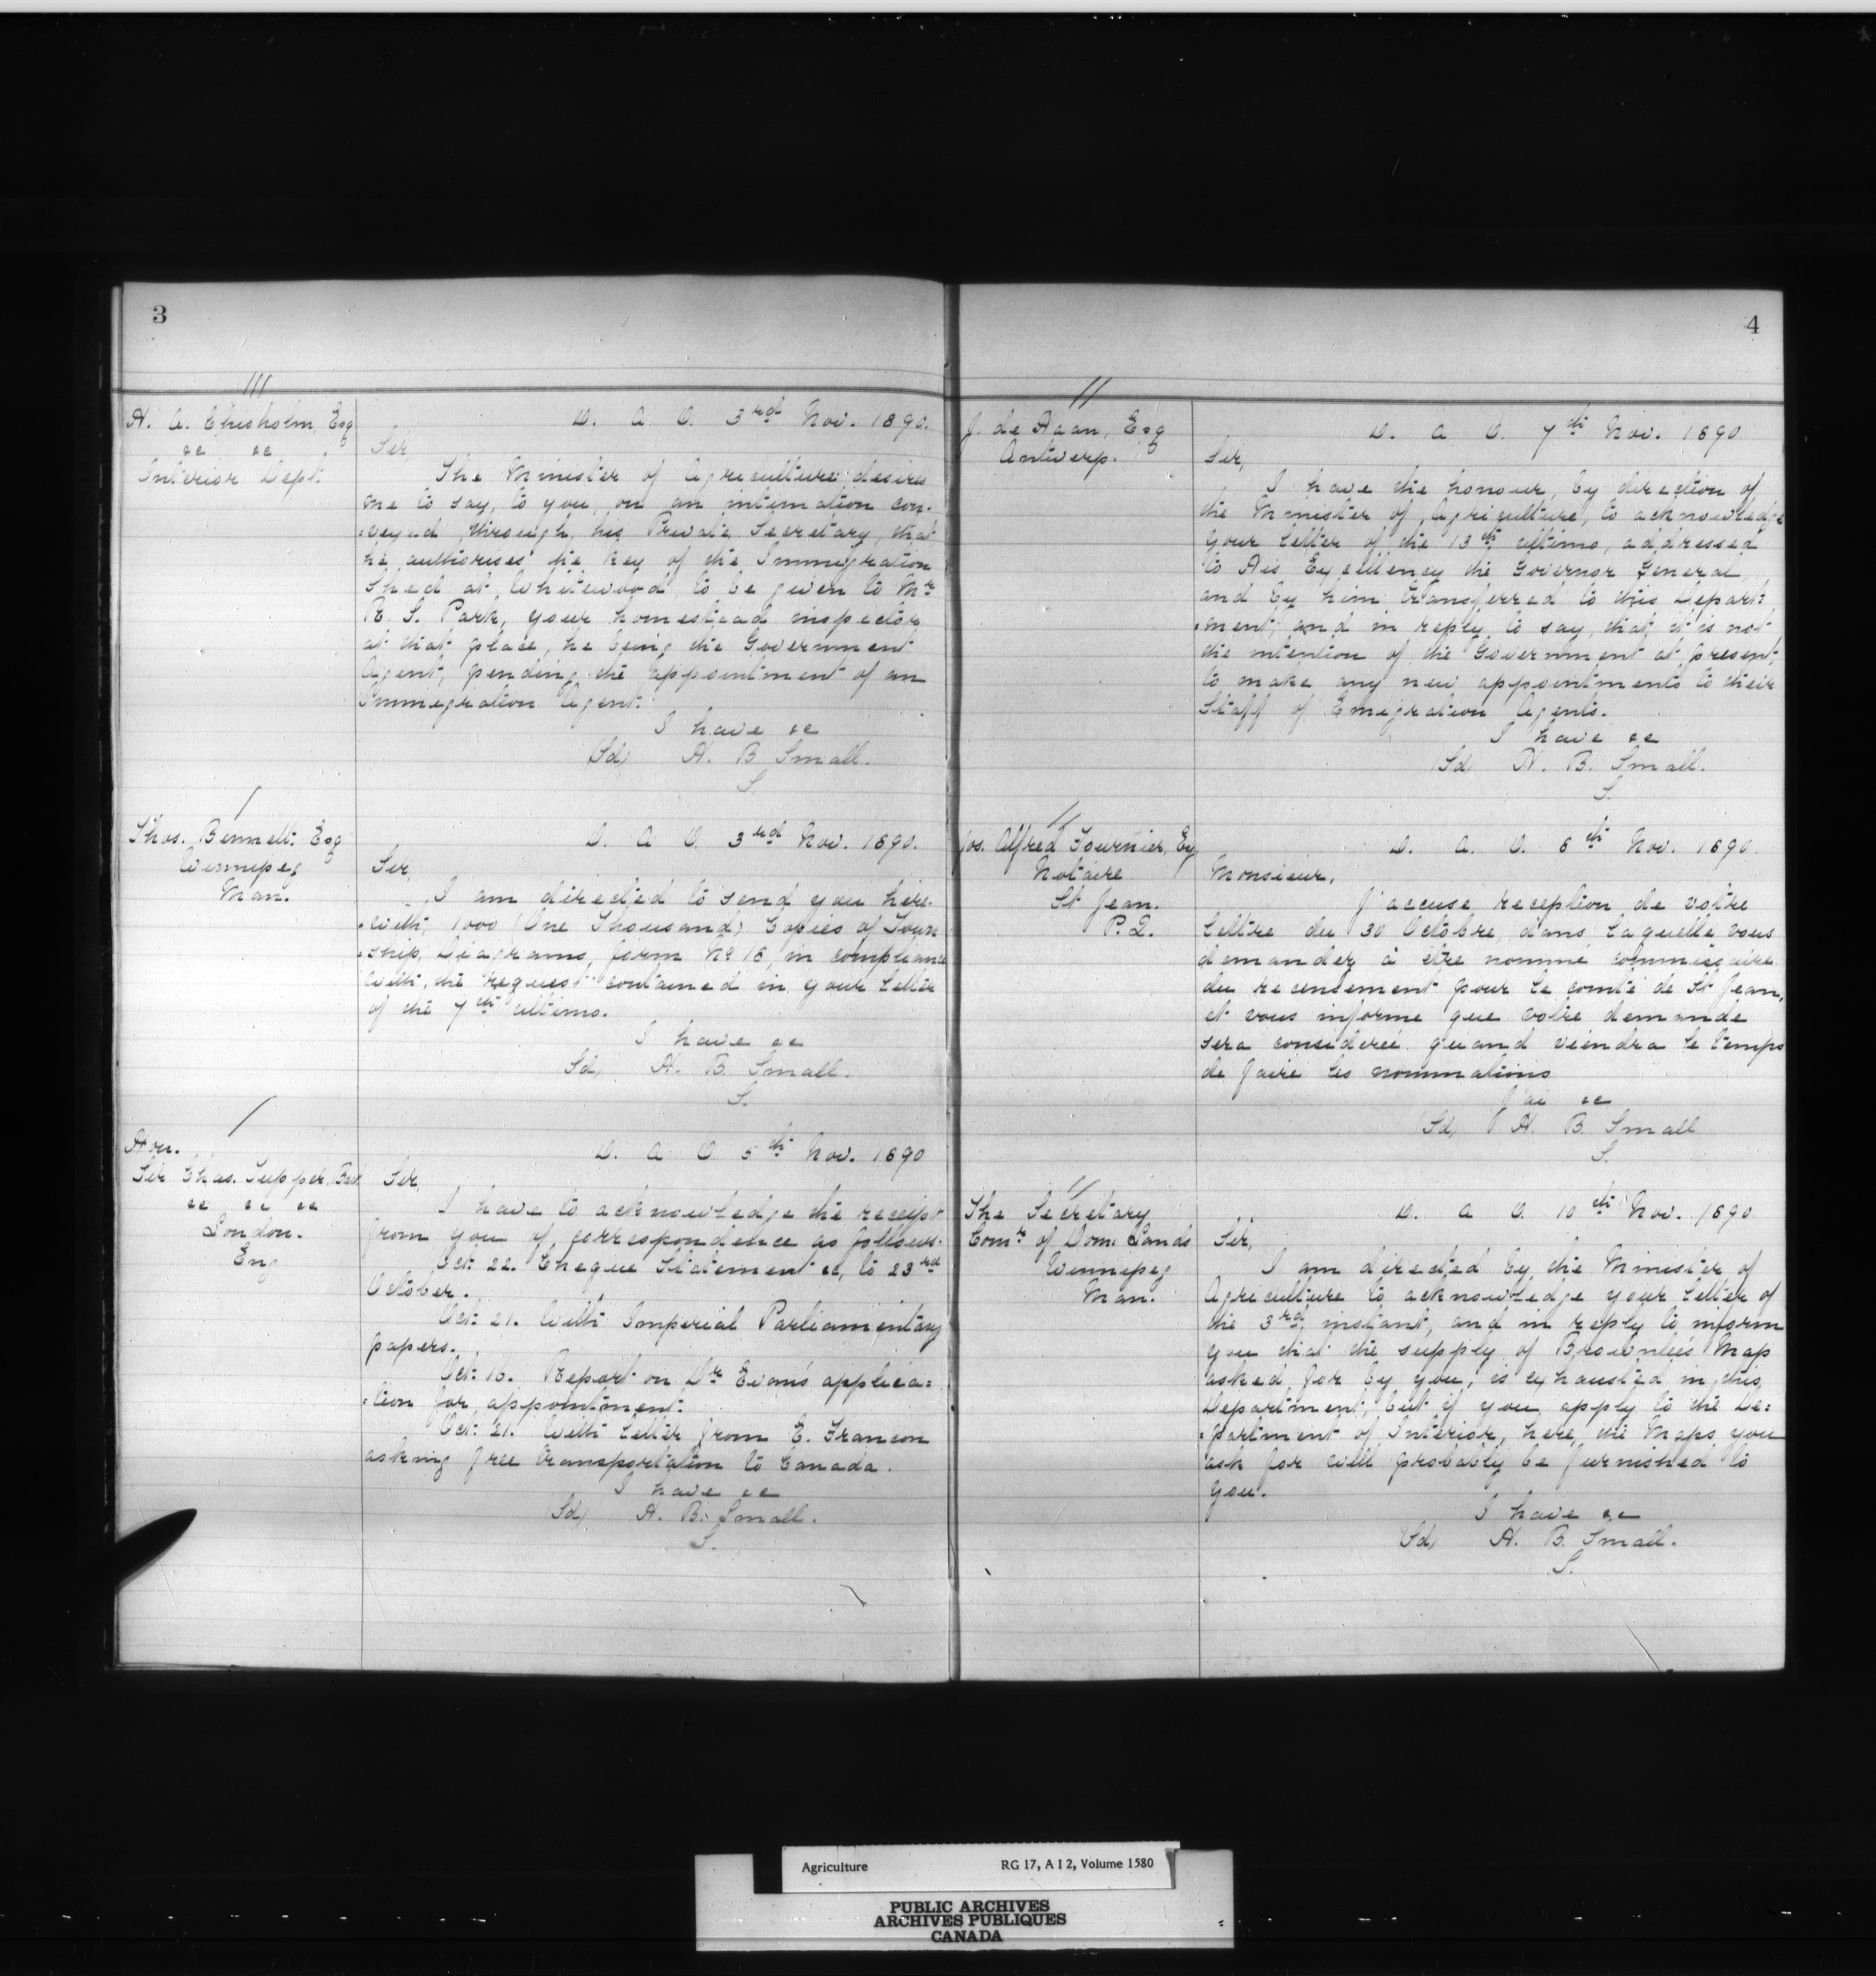 3
///
H. A. Chisholm, Esq
&c &c
Interior Dept.
D. A. O. 3rd Nov. 1890.
Sir,
The Minister of Agriculture desires
me to say, to you, on an intimation con-
=veyed through his Private Secretary, that
he authorises the key of the Immigration
Shed at Whitewood, to be given to Mr
R. S. Park, your homestead inspector
at that place, he being the Government
Agent, pending the appointment of an
Immigration Agent.
I have &c
(Sd) H. B. Small.
S.
/
Thos. Bennett Esq
Winnipeg
Man.
D. A. O. 3rd Nov. 1890.
Sir,
I am directed to send you here-
=with, 1000 (One Thousand) Copies of Town
=ship Diagrams, form No 16, in compliance
with the request contained in your letter
of the 7th ultimo.
I have &c
Sd) H. B. Small.
S.
/
Hon.
Sir Chas. Tupper, Bart
&c &c &c
London.
Eng
D. A. O. 5th Nov. 1890
Sir,
I have to acknowledge the receipt
from you of correspondence as follows.
Oct: 22. Cheque Statement &c, to 23rd
October.
Oct: 21. With Imperial Parliamentary
papers.
Oct: 16. Report on Dr Evans' applica=
=tion for appointment.
Oct: 21. With letter from E. Francon
asking free transportation to Canada.
I have &c
Sd) H. B. Small.
S.
4
//
J. de Haan, Esq
Antwerp.
D. A. O. 7th Nov. 1890
Sir,
I have the honour, by direction of
the Minister of Agriculture, to acknowledge
your letter of the 13th ultimo, addressed
to His Excellency the Governor General,
and by him transferred to this Depart=
=ment, and in reply to say, that it is not
the intention of the Government at present,
to make any new appointments to their
Staff of Emigration Agents.
I have &c
(Sd) H. B. Small.
S.
//
Jos. Alfred Fournier, Esq
Notaire
St Jean.
P. Q.
D. A. O. 6th Nov. 1890.
Monsieur,
J'accuse reception de votre
lettre du 30 Octobre, dans laquelle vous
demandez à être nommé commissaire
du recensement pour le comté de St Jean,
et vous informe que votre demande
sera considerée quand viendra le temps
de faire les nominations
J'ai &c
Sd) H. B. Small
S.
//
The Secretary
Comr of Dom. Lands
Winnipeg
Man.
D. A. O. 10th Nov. 1890
Sir,
I am directed by the Minister of
Agriculture to acknowledge your letter of
the 3rd instant, and in reply to inform
you that the supply of Brownlee's Map
asked for by you, is exhausted in this
Department, but if you apply to the De=
=partment of Interior, here, the Maps you
ask for will probably be furnished to
you.
I have &c
(Sd) H. B. Small.
S.
Agriculture RG 17, A I 2, Volume 1580
PUBLIC ARCHIVES
ARCHIVES PUBLIQUES
CANADA